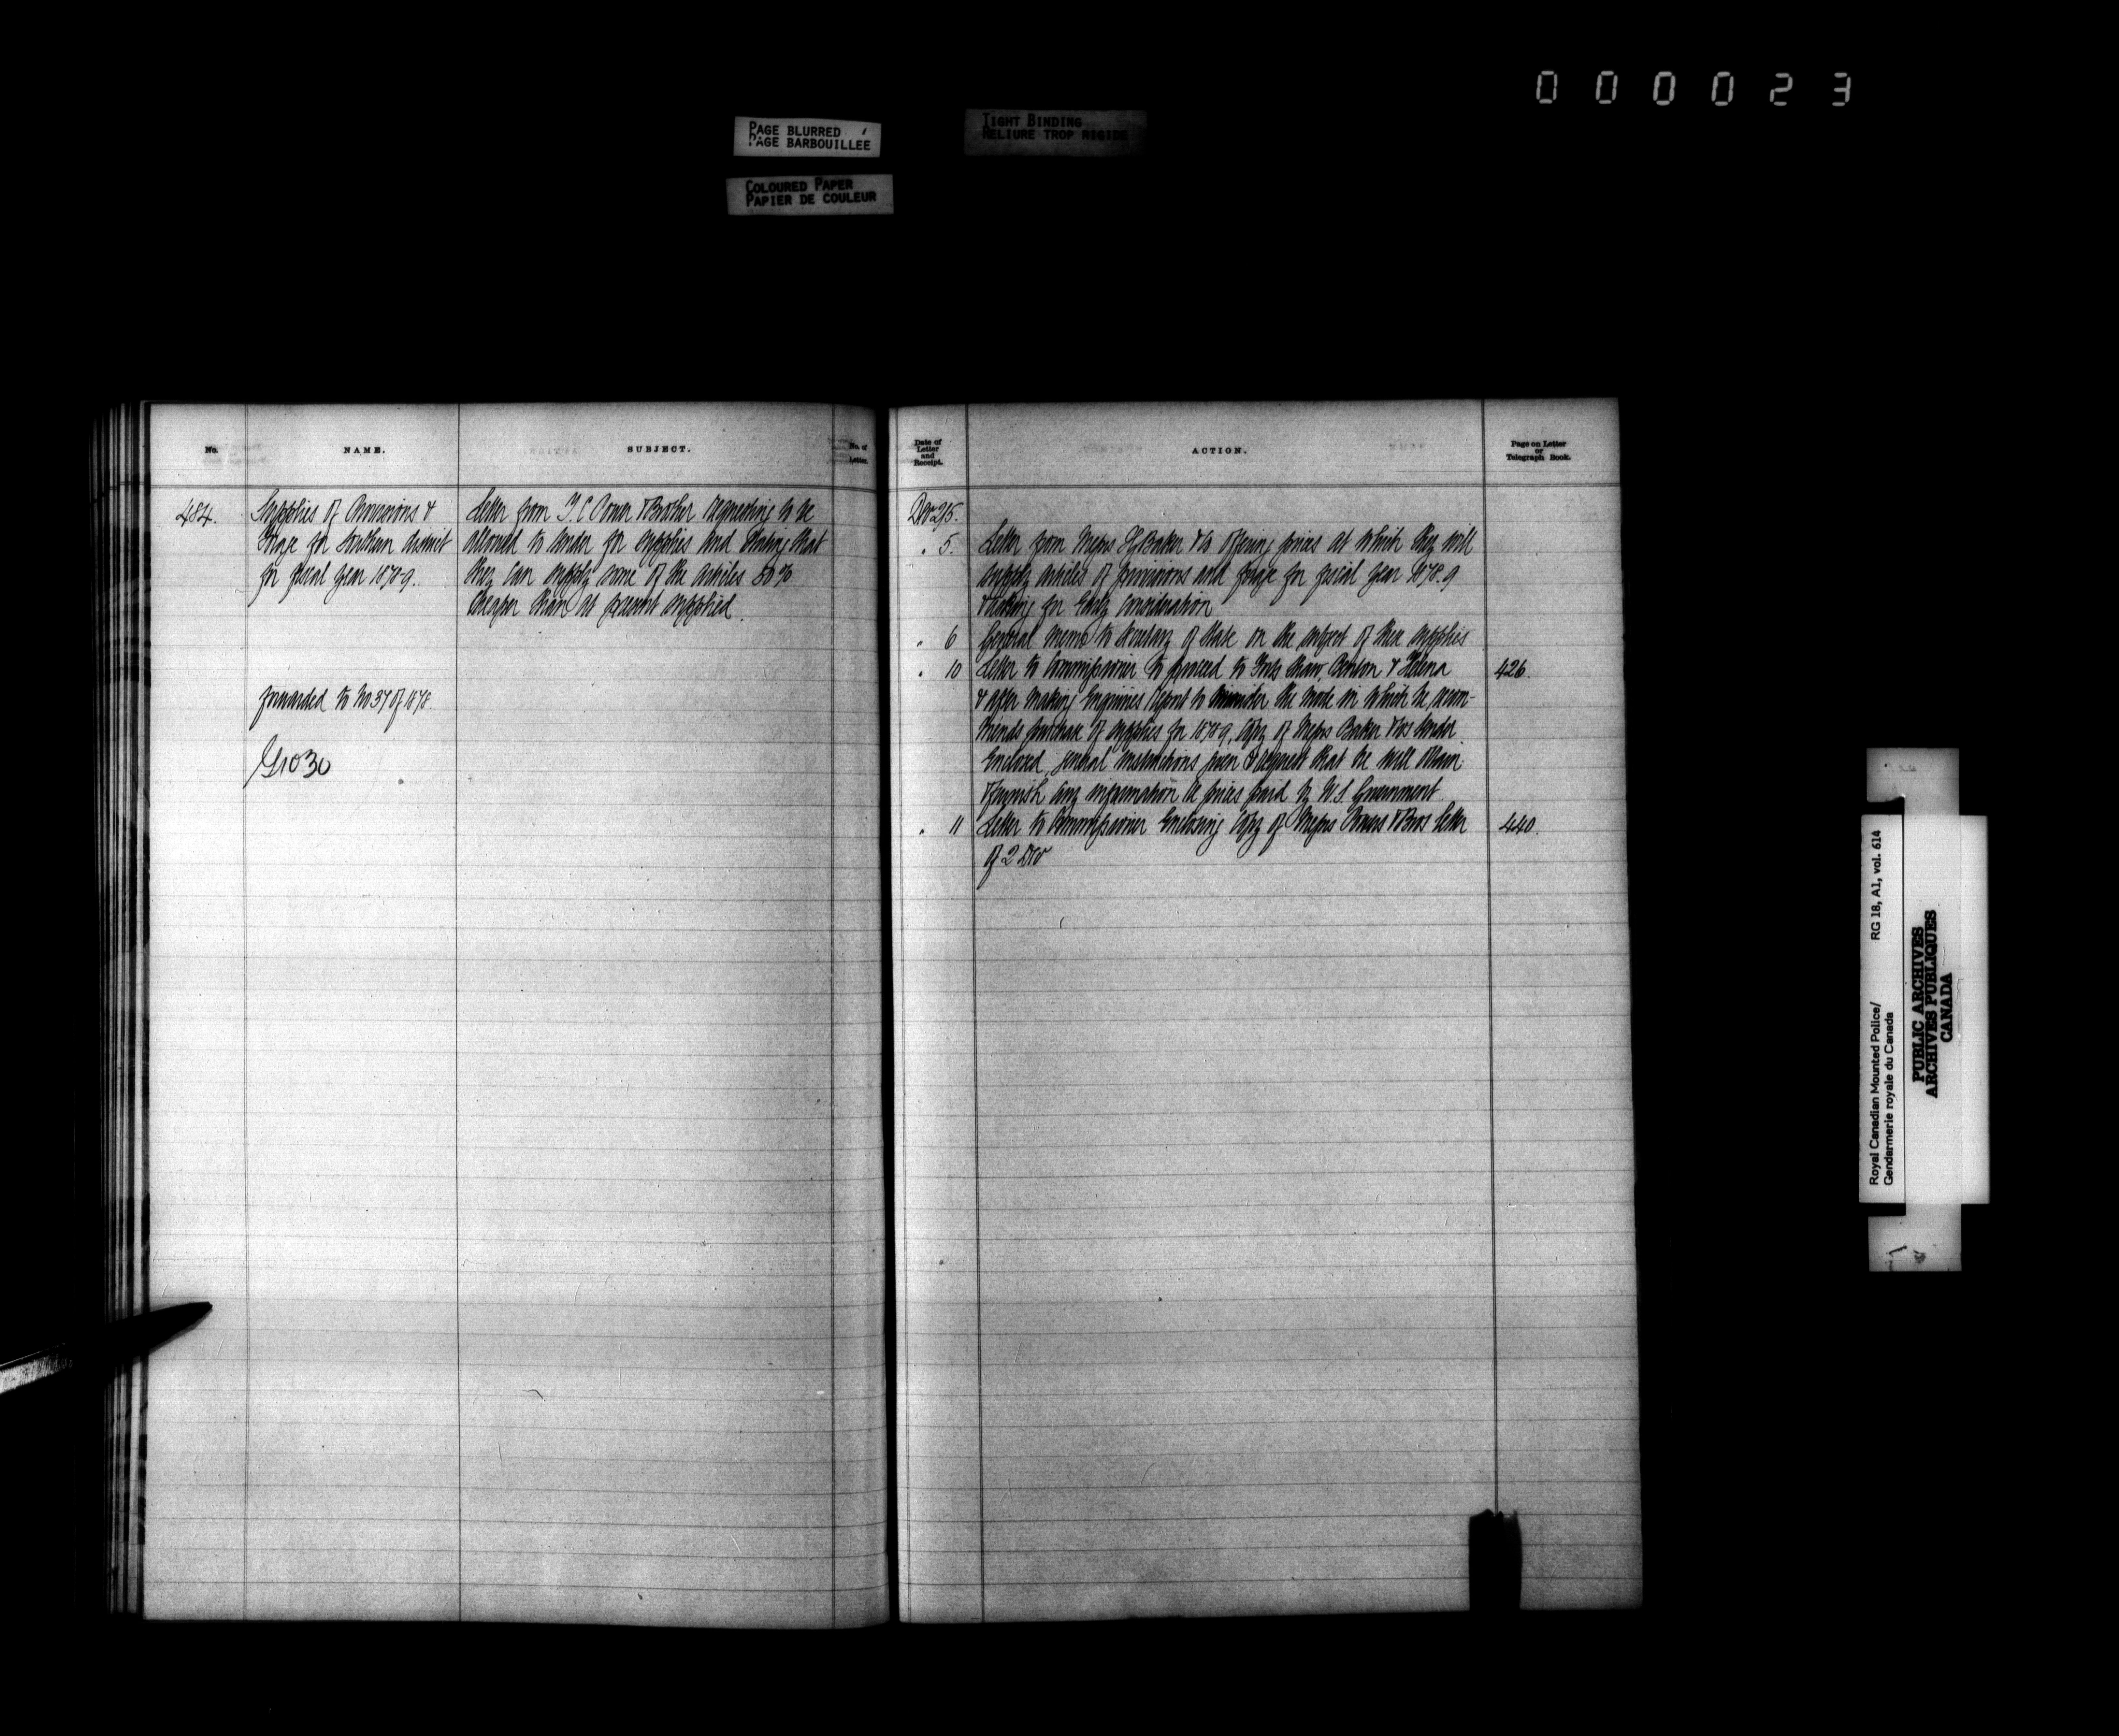 000023
PAGE BLURRED
PAGE BARBOUILLÉE
TIGHT BINDING
RELIURE TROP RIGIDE
COLOURED PAPER
PAPIER DE COULEUR
No.
NAME.
SUBJECT.
No. of
Letter.
484.
Supplies of Provisions &
forage for Southern district
for fiscal year 1878-9.
forwarded to No 37 of 1878.
Letter from T. C. Power & Brother requesting to be
allowed to tender for supplies and stating that
they can supply some of the articles 50%
cheaper than at present supplied.
Date of
Letter
and
Receipt.
ACTION.
Page on Letter
or
Telegraph Book.
Dec 2/5.
" 5. Letter from Messrs Baker & Co offering prices at which they will
supply articles of provisions and forage for fiscal year 1878-9
& asking for early consideration
" 6 General memo to Secretary of State on the subject of these supplies
" 10 Letter to Commissioner to proceed to Forts Shaw, Benton & Helena 426.
& after making enquiries report to Minister the mode in which he recom-
mends purchase of supplies for 1878-9, Copy of Messrs Baker & Cos tender
enclosed, general instructions given & request that he will obtain
& furnish any information re prices paid by U.S. Government
" 11 Letter to Commissioner enclosing copy of Messrs Powers & Bros letter 440.
of 2 Dec
Royal Canadian Mounted Police/
Gendarmerie royale du Canada
RG 18, A1, vol. 614
PUBLIC ARCHIVES
ARCHIVES PUBLIQUES
CANADA